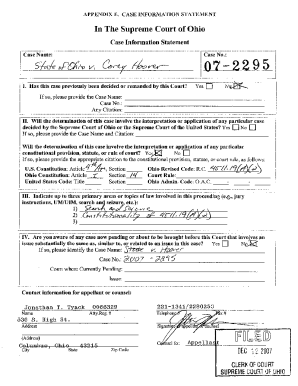 APPENDIX E. CASE INFORMATION STATEMENT
In The Supreme Court of Ohio
Case Information Statement
Case Name: Case No.:
State of Ohio v. Corey Hoover 07-2295
I. Has this case previously been decided or remanded by this Court? Yes No
If so, please provide the Case Name:
Case No.:
Any Citation:
II. Will the determination of this case involve the interpretation or application of any particular case
decided by the Supreme Court of Ohio or the Supreme Court of the United States? Yes No
Will the determination of this case involve the interpretation or application of any particular
constitutional provision, statute, or rule of court? Yes No
If so, please provide the appropriate citation to the constitutional provision, statute, or court rule, as follows:
U.S. Constitution: Article 4th Am, Section Ohio Revised Code: R.C. 4511.19(A)(2)
Ohio Constitution: Article I, Section 14 Court Rule:
United States Code: Title , Section Ohio Admin. Code: O.A.C.
III. Indicate up to three primary areas or topics of law involved in this proceeding (e.g., jury
instructions, UM/UIM, search and seizure, etc.):
1) Search and Seizure
2) Constitutionality of 4511.19(A)(2)
3)
IV. Are you aware of any case now pending or about to be brought before this Court that involves an
issue substantially the same as, similar to, or related to an issue in this case? Yes No
If so, please identify the Case Name: State v. Hoover
Case No.: 2007-2295
Court where Currently Pending:
Issue:
Contact information for appellant or counsel:
Jonathan T. Tyack 0066329 221-1341/2280253
Name Atty.Reg # Telephone # Fax #
536 S. High St.
Address Signature of appellant or counsel
(Address)
Columbus, Ohio 43215 Counsel for: Appellant
City State Zip Code
FILED
DEC 12 2007
CLERK OF COURT
SUPREME COURT OF OHIO